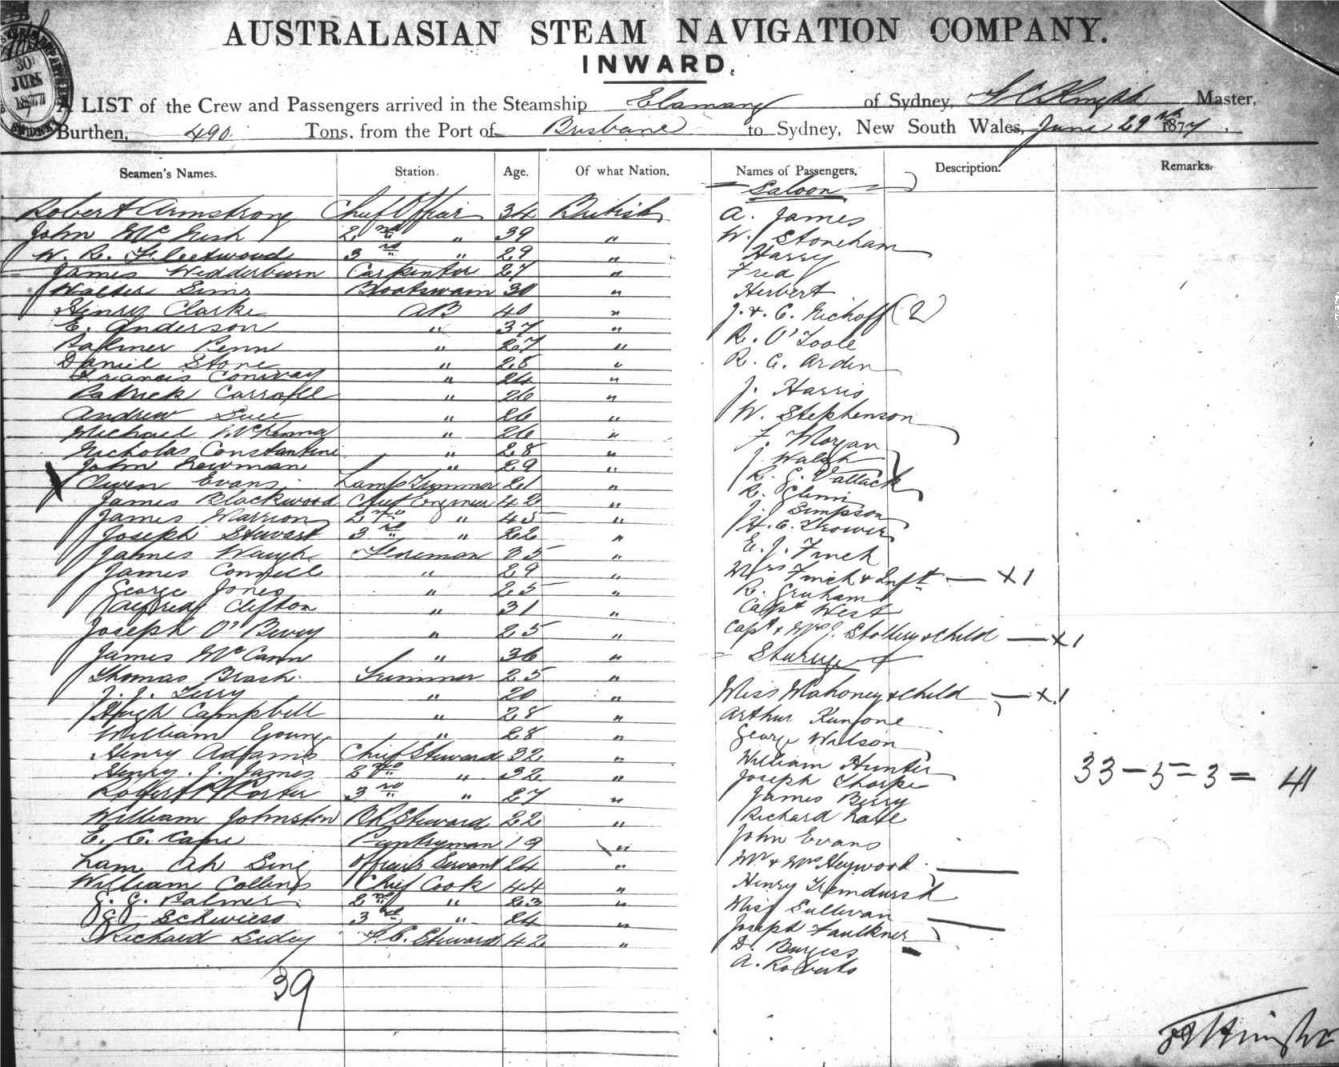 AUSTRALASIAN STEAM NAVIGATION COMPANY.
INWARD.
30 JUN 1877
A LIST of the Crew and Passengers arrived in the Steamship Elamang of Sydney, Master,
Burthen, 490 Tons, from the Port of Brisbane to Sydney, New South Wales, June 29th 1877.
Seamen's Names. Station. Age. Of what Nation. Names of Passengers. Description. Remarks.
Saloon
Robert Armstrong Chief Officer 34 British
John Mc 2nd " 39 "
W. R. Fleetwood 3rd " 29 "
James Wedderburn Carpenter 27 "
Walter Sims Boatswain 30 "
Henry Clarke AB 40 "
E. Anderson " 37 "
Penn " 27 "
Daniel Stone " 28 "
Francis Conway " 24 "
Patrick Carroll " 26 "
Andrew " 26 "
Michael McKenna " 26 "
Nicholas Constantine " 28 "
John Newman " 29 "
Owen Evans Lamp Trimmer 21 "
James Blackwood Chief Engineer 42 "
James Marrion 2nd " 45 "
Joseph Stewart 3rd " 22 "
James Waugh Fireman 35 "
James Connell " 29 "
George Jones " 25 "
Alfred Clifton " 31 "
Joseph O' " 25 "
James McCann " 36 "
Thomas Brash Trimmer 25 "
J. J. Terry " 20 "
Hugh Campbell " 28 "
William Young " 28 "
Henry Adams Chief Steward 32 "
Henry J. James 2nd " 32 "
Robert Porter 3rd " 27 "
William Johnston Steward 22 "
E. C. Kane Pantryman 19 "
Lam Ah Sing Officers Servant 24 "
William Collins Chief Cook 44 "
G. G. Palmer 2nd " 23 "
3rd " 24 "
Richard F.C. Steward 42 "
39
A. James
W. Stoneham
Harry
Fred
Herbert
J. & C. (2)
R. O'Toole
R. C. Arden
J. Harris
W. Stephenson
F. Morgan
J. Walsh
R. G. Vattack
R. Glenn
J. Simpson
H. C. Trower
E. J. Finch
Mrs Finch & Inft — x1
R. Graham
Capt West
Capt & Mrs & child — x1
Steerage
Miss Mahoney & child — x1
Arthur
George Wilson
William Hunter
Joseph Thorpe
James Berry
Richard
John Evans
Mr & Mrs Heywood
Henry
Miss Sullivan
Joseph Faulkner
D. Burgess
A. Roberts
33 – 5 = 3 = 41